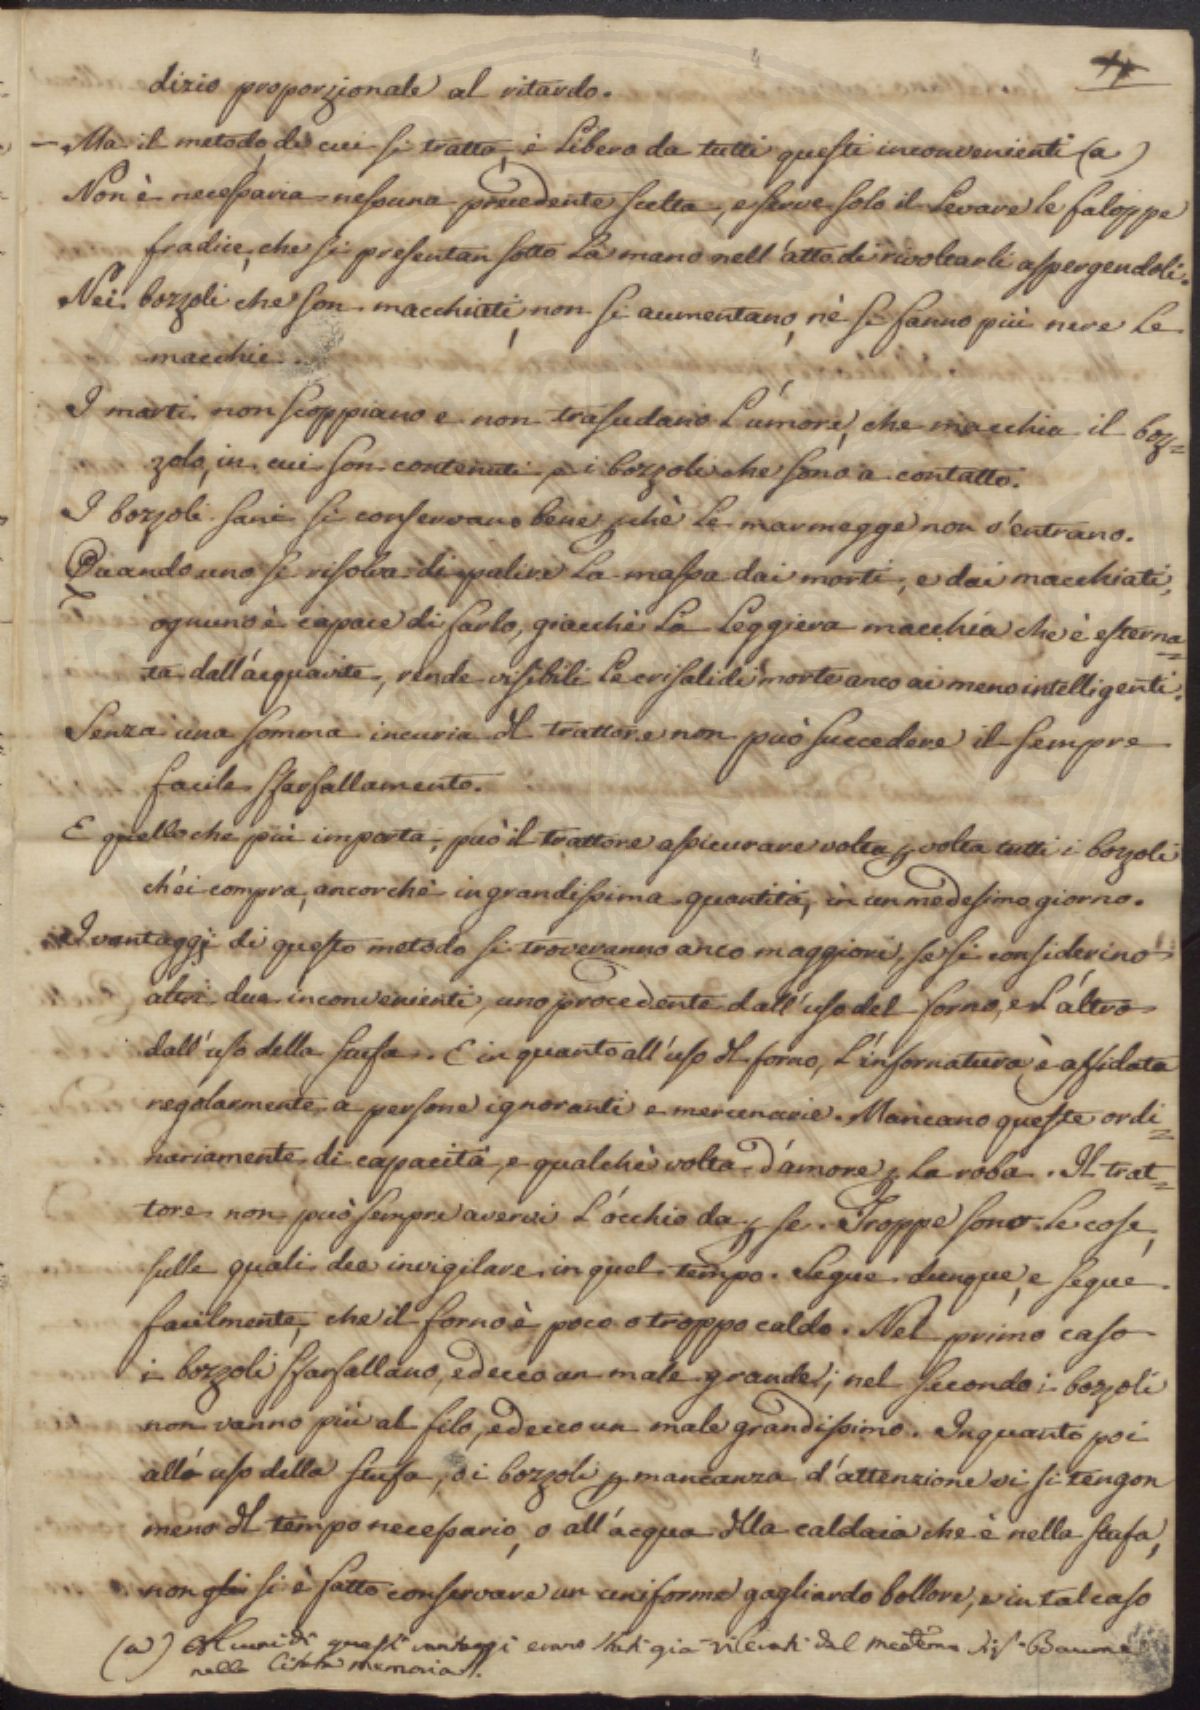 dizio proporzionale al ritardo.
– Ma il metodo, di cui si tratta, è libero da tutti questi inconvenienti (a)
Non è necessaria nessuna precedente scelta, e serve solo il levare le faloppe
fradice, che si presentan sotto la mano nell'atto di rivoltarli aspergendoli.
Nei bozzoli che son macchiati, non si aumentano, nè si fanno più nere le
macchie.
I morti non scoppiano e non trasudano l'umore, che macchia il boz=
zolo, in cui son contenuti, e i bozzoli che sono a contatto.
I bozzoli sani si conservano bene, pchè le marmegge non v'entrano.
Quando uno si risolva di pulire la massa dai morti, e dai macchiati,
ognuno è capace di farlo, giacchè la leggiera macchia che è esterna=
ta dall'acquavite, rende visibili le crisalidi morte anco ai meno intelligenti.
Senza una somma incuria dl trattore non può succedere il sempre
facile sfarfallamento.
E quello che più importa, può il trattore assicurare volta p volta tutti i bozzoli
ch'ei compra, ancorchè in grandissima quantità, in un medesimo giorno.
I vantaggi di questo metodo si troveranno anco maggiori, se si considerino
altri due inconvenienti, uno procedente dall'uso del forno, e l'altro
dall'uso della stufa. E in quanto all'uso dl forno, l'infornatura è affidata
regolarmente a persone ignoranti e mercenarie. Mancano queste ordi=
nariamente di capacità, e qualche volta d'amore p la roba. Il trat=
tore non può sempre avervi l'occhio da p se. Troppe sono le cose,
sulle quali dee invigilare in quel tempo. Segue dunque, e segue
facilmente, che il forno è poco o troppo caldo. Nel primo caso
i bozzoli sfarfallano, ed ecco un male grande; nel secondo i bozzoli
non vanno più al filo, ed ecco un male grandissimo. In quanto poi
all' uso della stufa, o i bozzoli p mancanza d'attenzione vi si tengon
meno dl tempo necessario, o all'acqua dlla caldaia che è nella stufa,
non gli si è fatto conservare un uniforme gagliardo bollore, e in tal caso
(a) Alcuni di questi vantaggi erano stati già rilevati dal Sig. Baume
nella citata memoria.